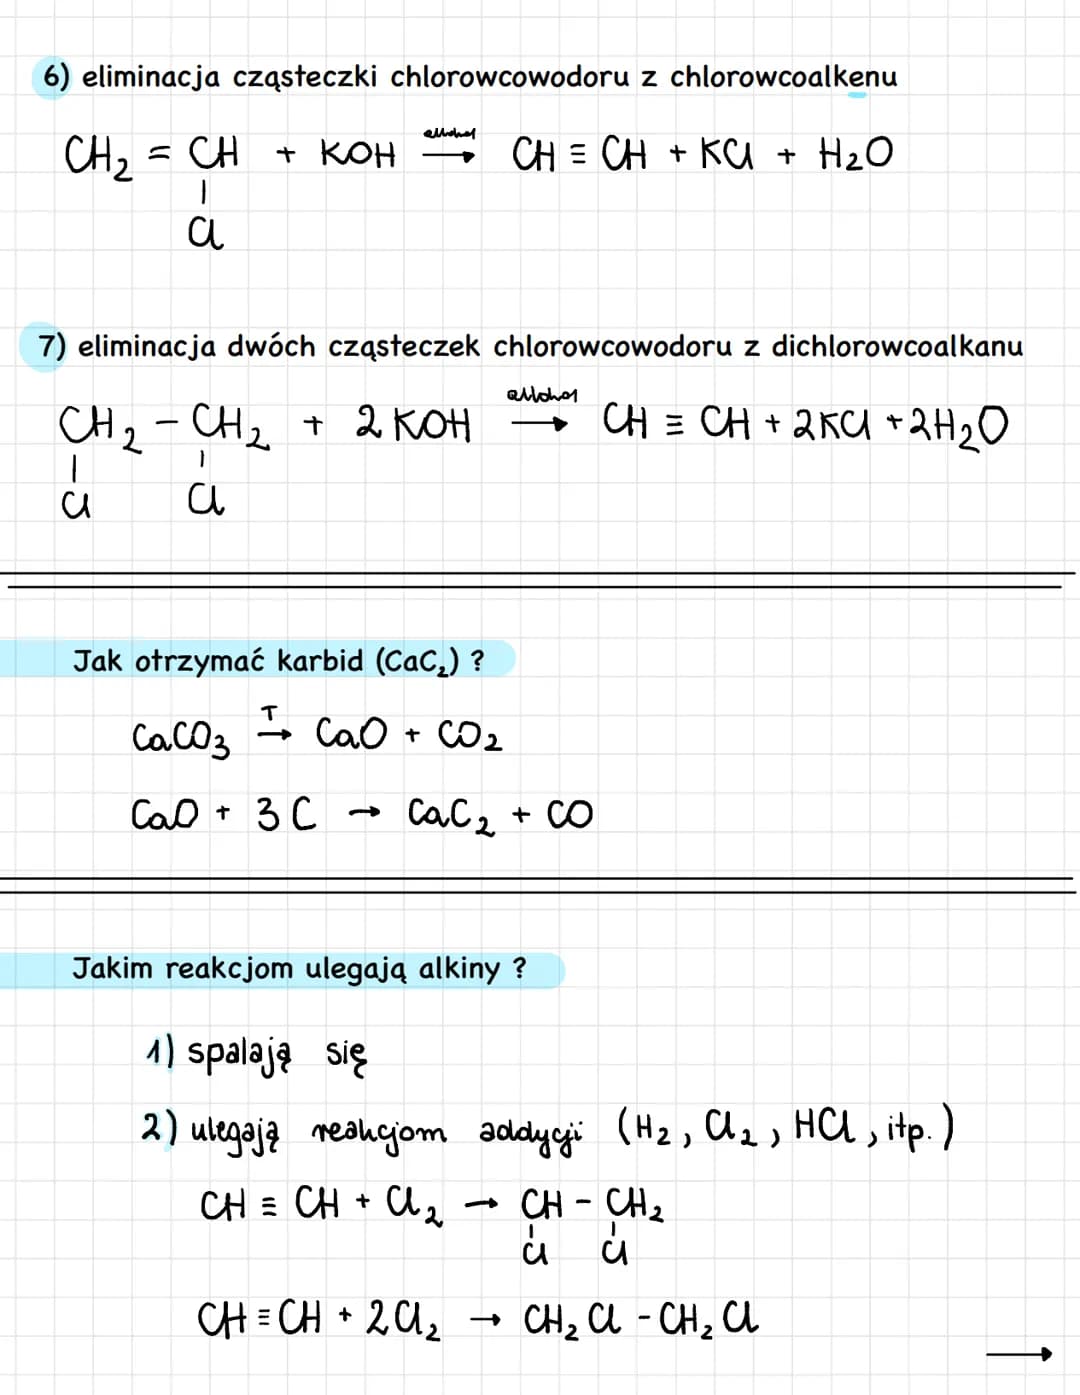 6) eliminacja cząsteczki chlorowcowodoru z chlorowcoalkenu
CH₂ = CH + KOH →(alkohol) CH ≡ CH + KCl + H₂O
|
Cl
7) eliminacja dwóch cząsteczek chlorowcowodoru z dichlorowcoalkanu
CH₂ - CH₂ + 2 KOH →(alkohol) CH ≡ CH + 2KCl + 2H₂O
| |
Cl Cl
Jak otrzymać karbid (CaC₂) ?
CaCO₃ →(T) CaO + CO₂
CaO + 3 C → CaC₂ + CO
Jakim reakcjom ulegają alkiny ?
1) spalają się
2) ulegają reakcjom addycji (H₂, Cl₂, HCl, itp.)
CH ≡ CH + Cl₂ → CH - CH₂
| |
Cl Cl
CH ≡ CH + 2Cl₂ → CH₂Cl - CH₂Cl
→